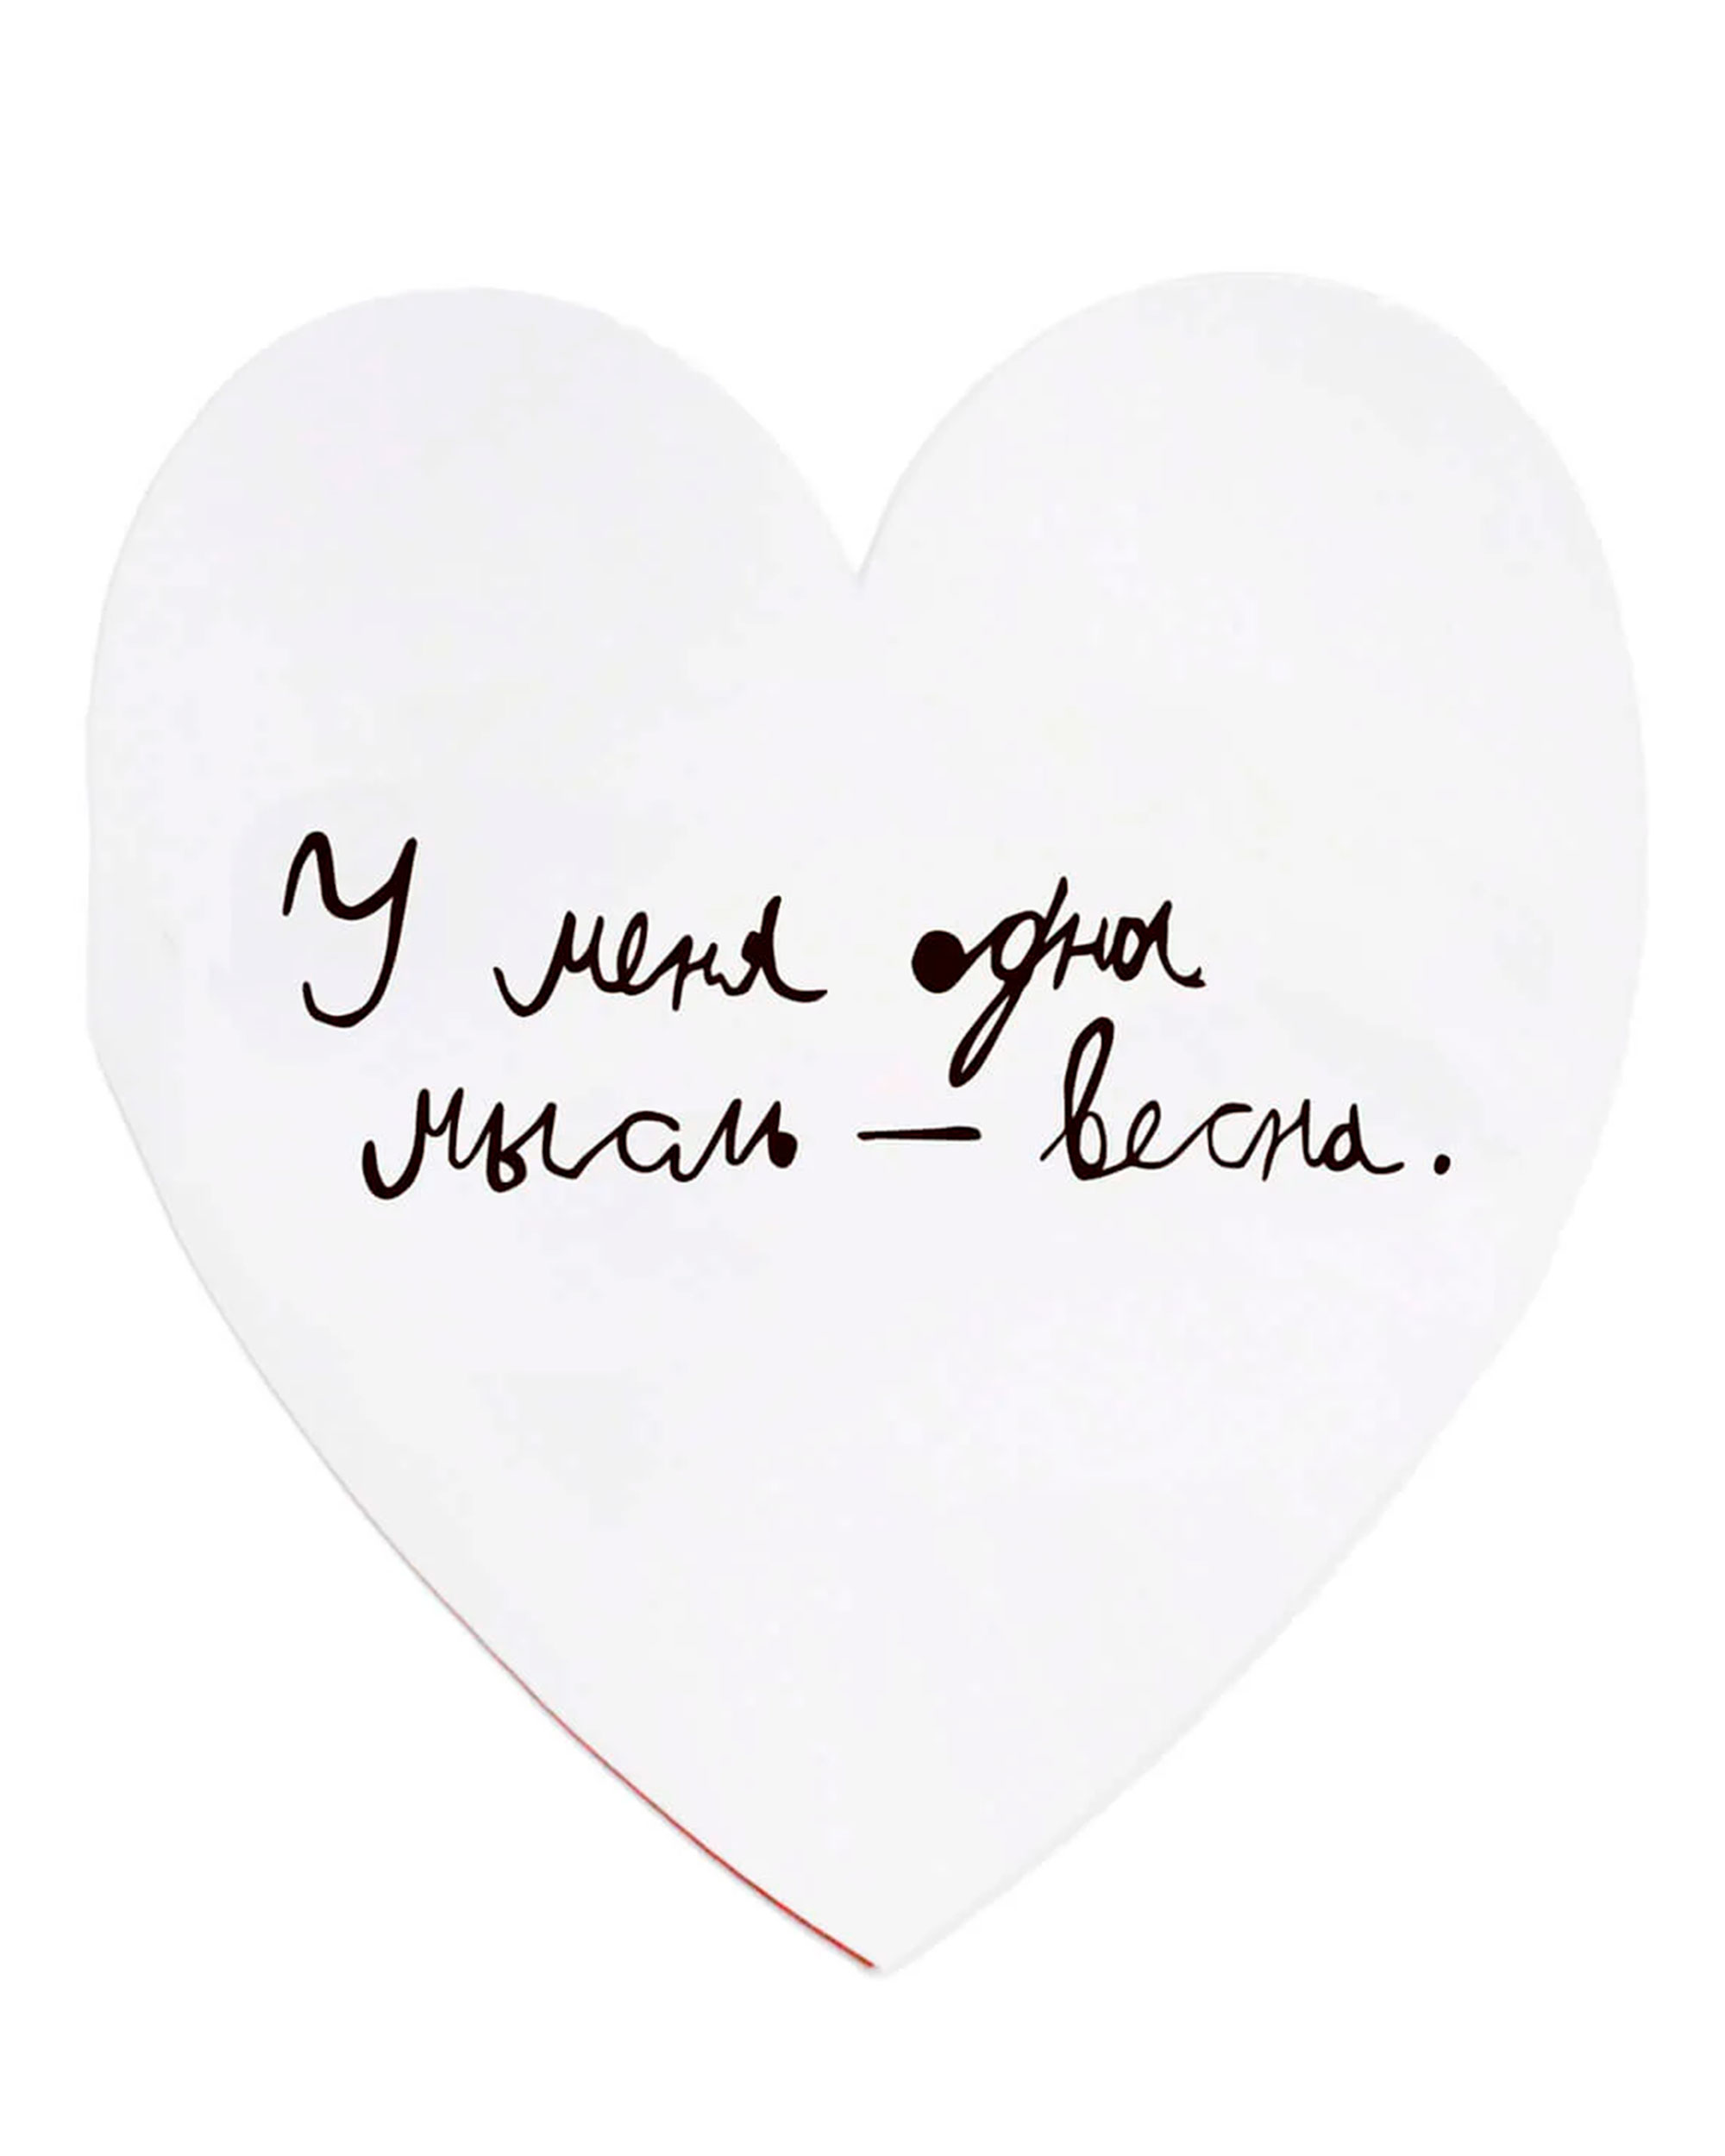 У меня одна
мысль — весна.